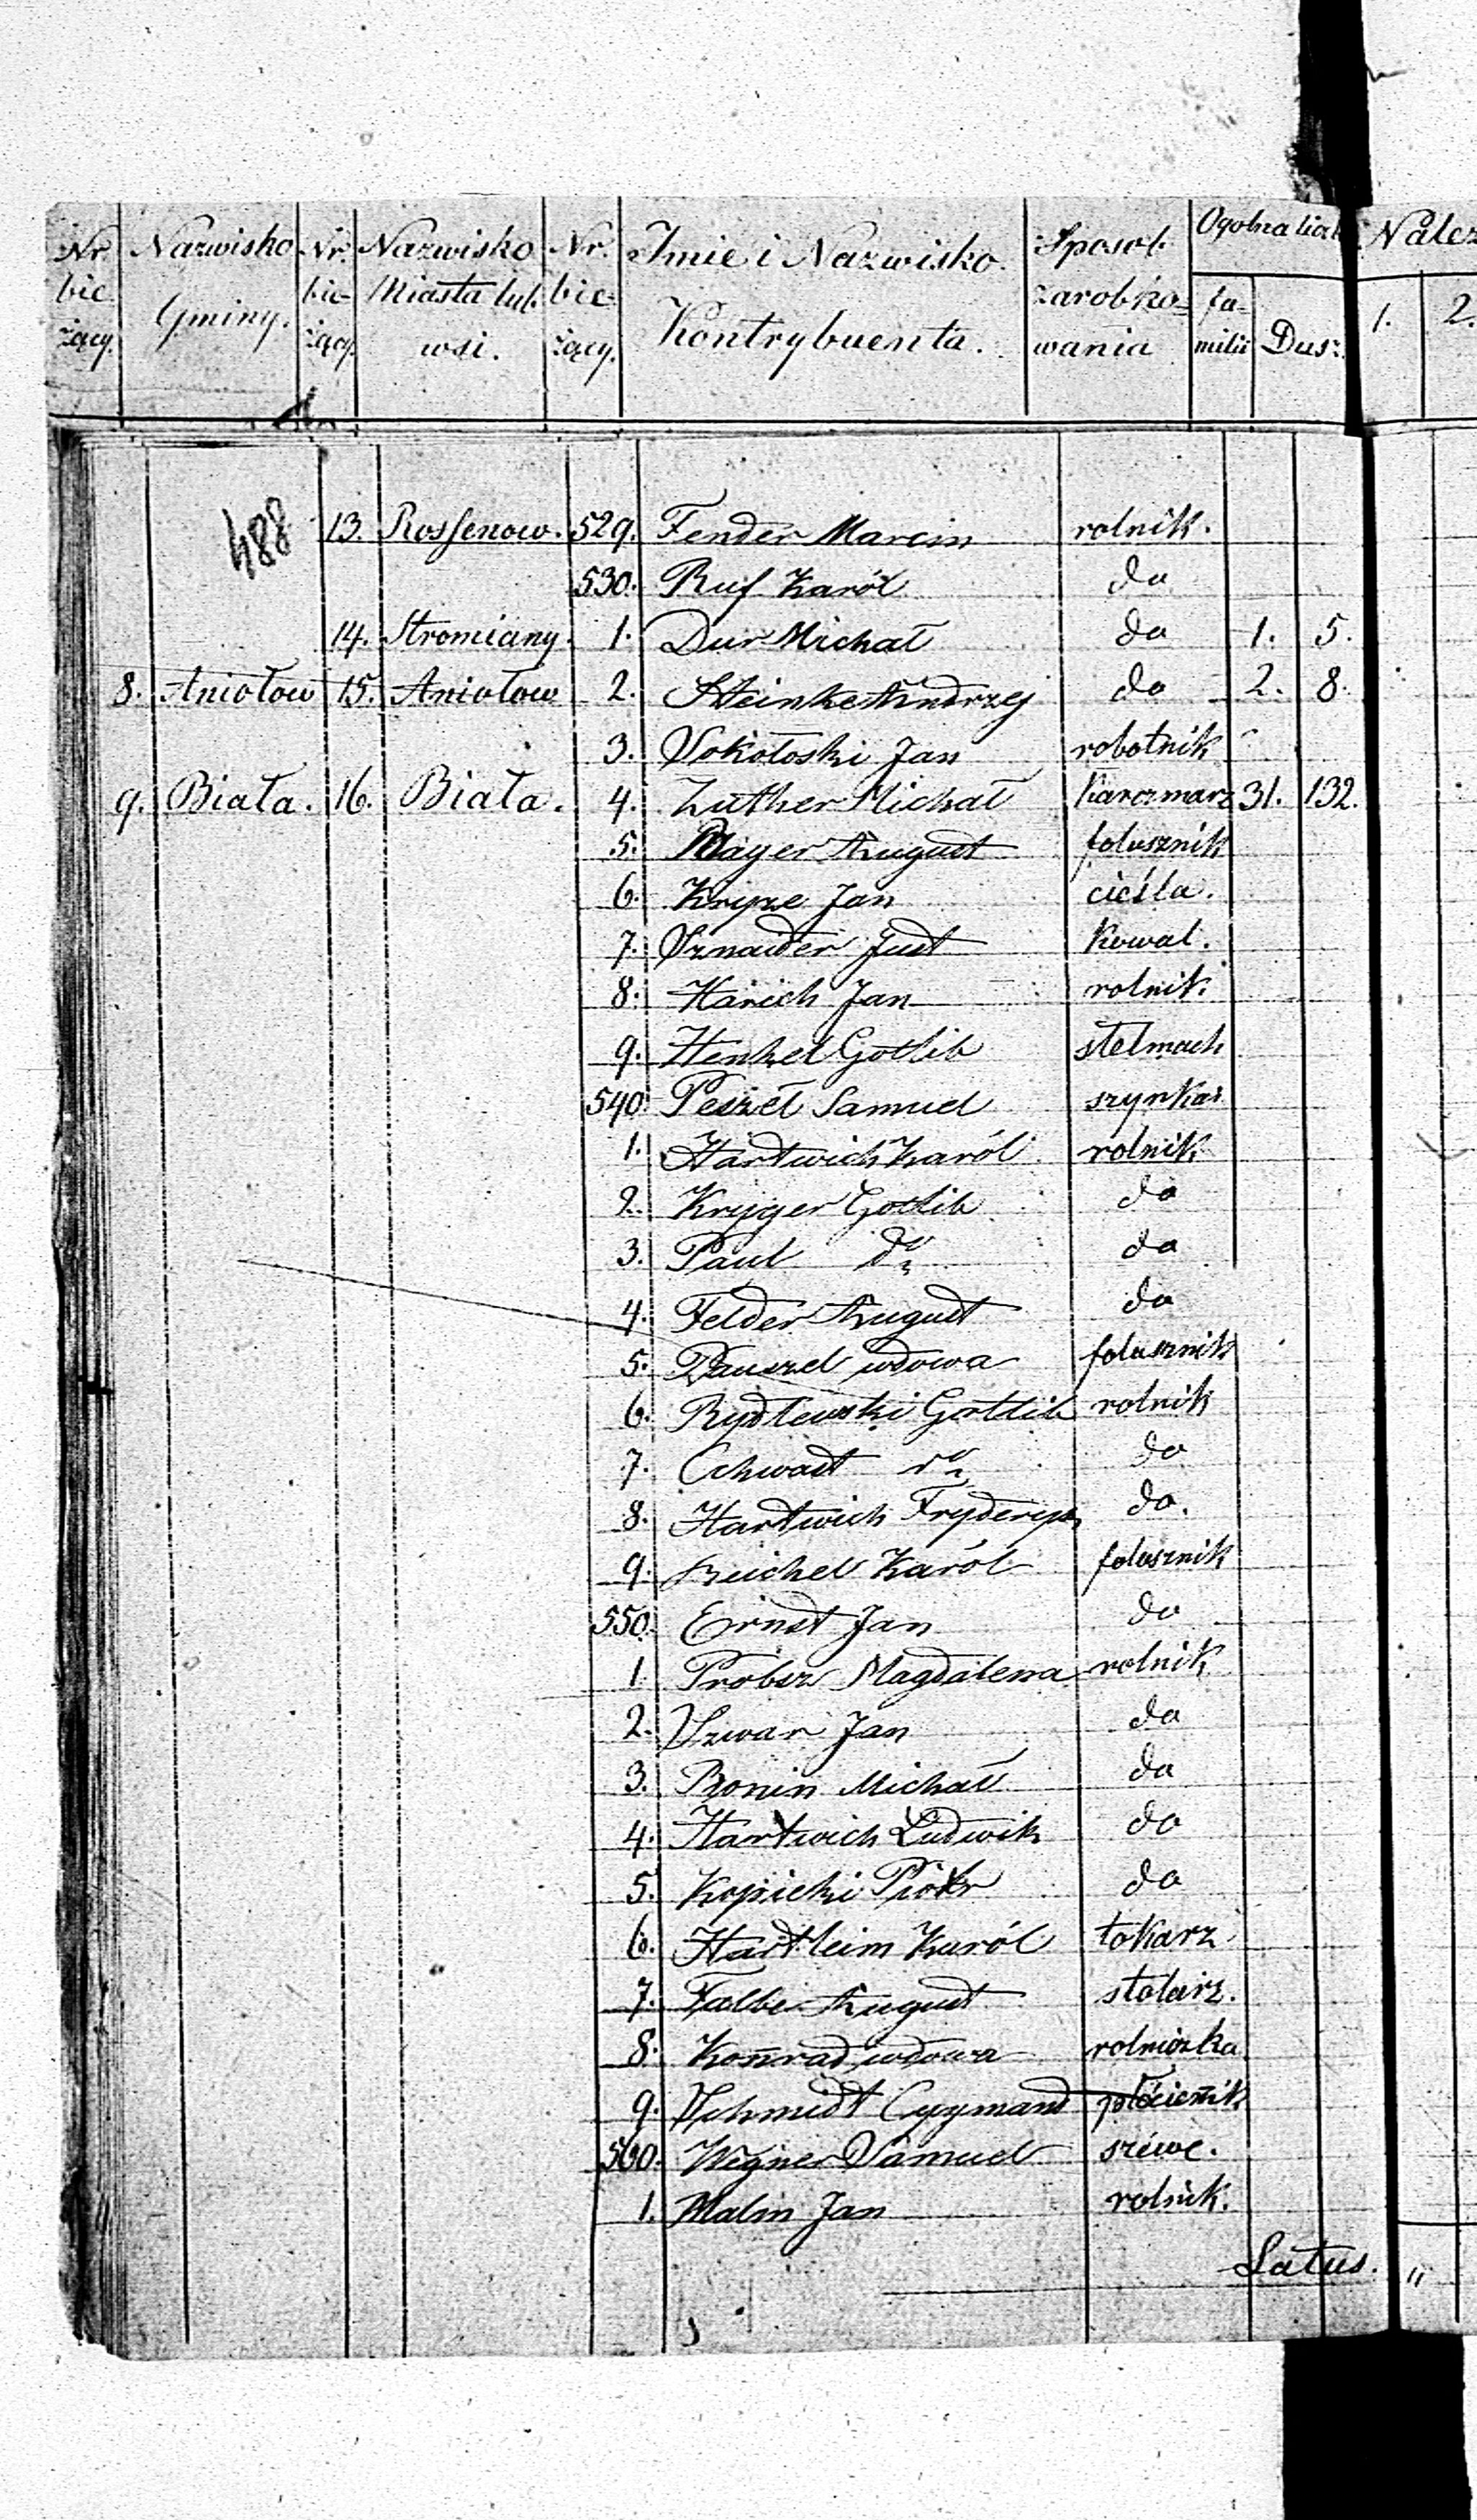 Nr. bieżący. Nazwisko Gminy. Nr. bieżący Nazwisko Miasta lub wsi. Nr. bieżący. Imie i Nazwisko Kontrybuenta. Sposob zarobkowania Ogolna liczb familii Dusz. Należ 1. 2.
488
13. Rossenow. 529. Fender Marcin rolnik.
530. Ruf Karól do
14. Stromiany. 1. Dur Michał do 1. 5.
8. Aniołow 15. Aniołow 2. Steinke Andrzej do 2. 8.
3. Sokołoski Jan robotnik
9. Biała. 16. Biała. 4. Luther Michał karczmarz 31. 132.
5. Mayer August folusznik
6. Kryze Jan cieśla.
7. Sznaider Just kowal.
8. Harich Jan rolnik.
9. Henkel Gotlib stelmach
540. Peszel Samuel szynkar
1. Hartwich Karól rolnik
2. Kryger Gotlib do
3. Paul do do
4. Felder August do
5. Pauszel wdowa folusznik
6. Rydlewski Gottlib rolnik
7. Schwast do do
8. Hartwich Fryderyk do.
9. Reichel Karól folusznik
550. Ernst Jan do
1. Probsz Magdalena rolnik
2. Szwar Jan do
3. Bonin Michał do
4. Hartwich Ludwik do
5. Kopicki Piotr do
6. Hartleim Karól tokarz
7. Falbe August stolarz.
8. Konrad wdowa rolniczka
9. Schmidt Cyzmand płóciennik
560. Wegner Samuel szewc.
1. Malin Jan rolnik.
Latus. "